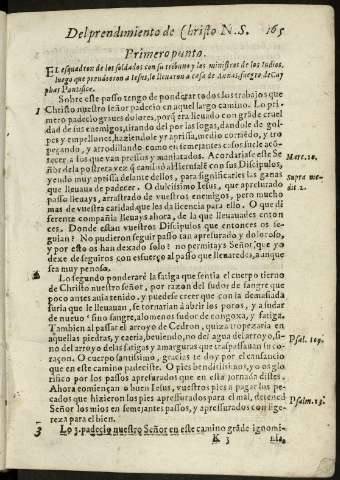 Del prendimiento de Christo N.S. 165
Primero punto.
EL esquadron de los soldados con su tribuno y los ministros de los Iudios,
luego que prendieron a Iesus, le lleuaron a casa de Annas, suegro de Cay
phas Pontifice.
Sobre este passo tengo de ponderar todos los trabajos que
1 Christo nuestro señor padecio en aquel largo camino. Lo pri-
mero padecio graues dolores, porq̃ era lleuado con grãde cruel
dad de sus enemigos, tirando del por las sogas, dandole de gol-
pes y empellones, haziendole yr apriessa, medio corrido, y tro
peçando, y arrodillando como en semejantes casos suele aco-
tecer a los que van pressos y maniatados. Acordariase este Se
ñor de la postrera vez q̃ caminò a Hierusalẽ con sus Discipulos, Marc. 10.
yendo muy apriessa delante dellos, para significarles las ganas Supra me-
que lleuaua de padecer. O dulcissimo Iesus, que apresurado dit 2.
passo lleuays, arrastrado de vuestros enemigos, pero mucho
mas de vuestra caridad, que les da licencia para ello. O que di
ferente compañia lleuays ahora, de la que lleuauades enton
ces. Donde estan vuestros Discipulos que entonces os se-
guian? No pudieron seguir passo tan apresurado y doloroso,
y por esto os han dexado solo: no permitays Señor, que yo
dexe de seguiros con esfuerço al passo que lleuaredes, aunque
sea muy penoso.
2 Lo segundo ponderarè la fatiga que sentia el cuerpo tierno
de Christo nuestro señor, por razon del sudor de sangre que
poco antes auia tenido, y puedese creer que con la demasiada
furia que le lleuauan, se tornarian à abrir los poros, y a sudar
de nueuo, sino sangre, alomenos sudor de congoxa, y fatiga.
Tambien al passar el arroyo de Cedron, quiza tropezaria en
aquellas piedras, y caeria, beuiendo, no del agua del arroyo, si- Psal. 109.
nò del arroyo de las fatigas y amarguras que traspassauan su co-
raçon. O cuerpo santissimo, gracias te doy por el cansancio
que en este camino padeciste. O pies benditissimos, yo os glo
rifico por los passos apresurados que en esta jornada distes.
Ahora començan o buen Iesus, vuestros pies a pagar los pe-
cados que hizieron los pies apressurados para el mal, detened Psalm. 13.
Señor los mios en semejantes passos, y apressurados con lige-
reza para el bien.
3 Lo 3. padecio nuestro Señor en este camino grãde ignomi-
K 3